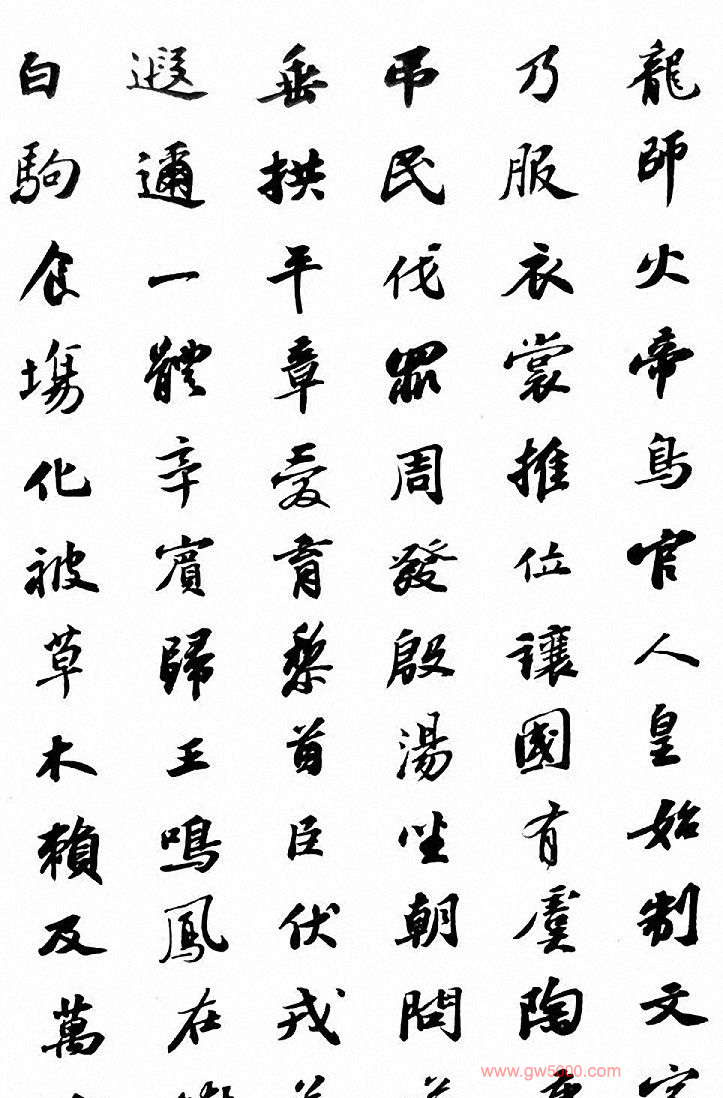 龍師火帝鳥官人皇始制文字
乃服衣裳推位讓國有虞陶
弔民伐罪周發殷湯坐朝問
垂拱平章愛育黎首臣伏戎
遐邇一體辛賓歸王鳴鳳在
白駒食場化被草木賴及萬
www.gw5000.com